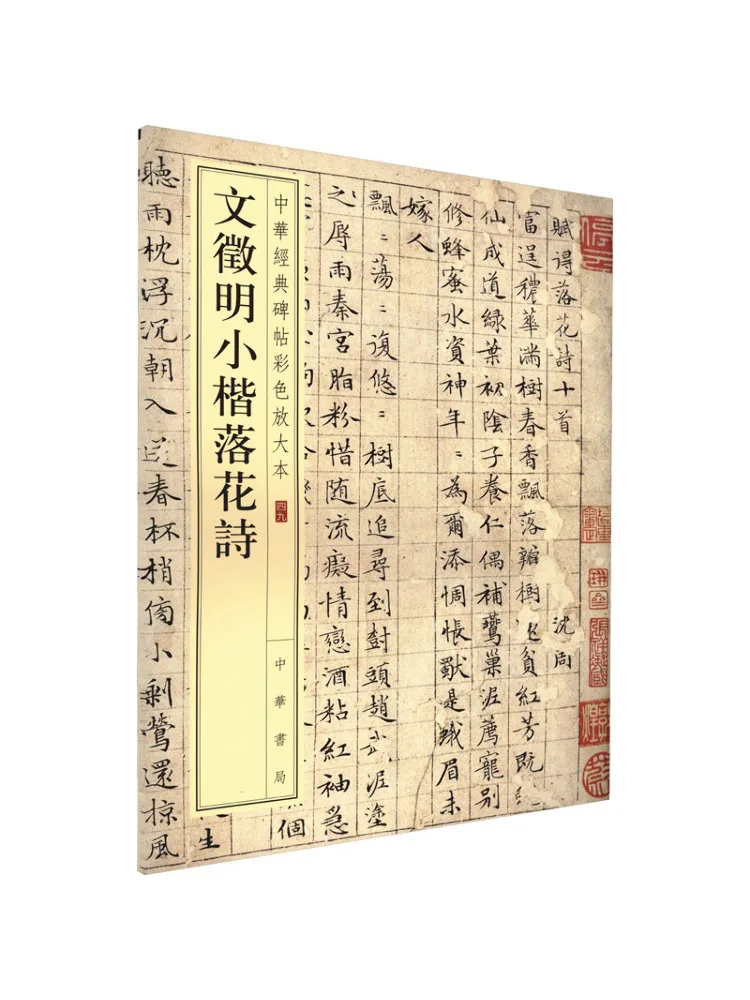 文徵明小楷落花詩
中華經典碑帖彩色放大本
四九
中華書局
賦得落花詩十首 沈周
富逞穠華滿樹春香飄落瓣樹還貧紅芳既
仙成道綠葉初陰子養仁偶補鶯巢泥薦寵別
修蜂蜜水資神年〻為爾添惆悵是蛾眉未
嫁人
飄〻蕩〻復悠〻樹底追尋到樹頭趙武泥塗
之辱雨秦宮脂粉惜随流癡情戀酒粘紅袖急
個
生
聽雨枕浮沉朝入春杯梢傍小剩鶯還掠風